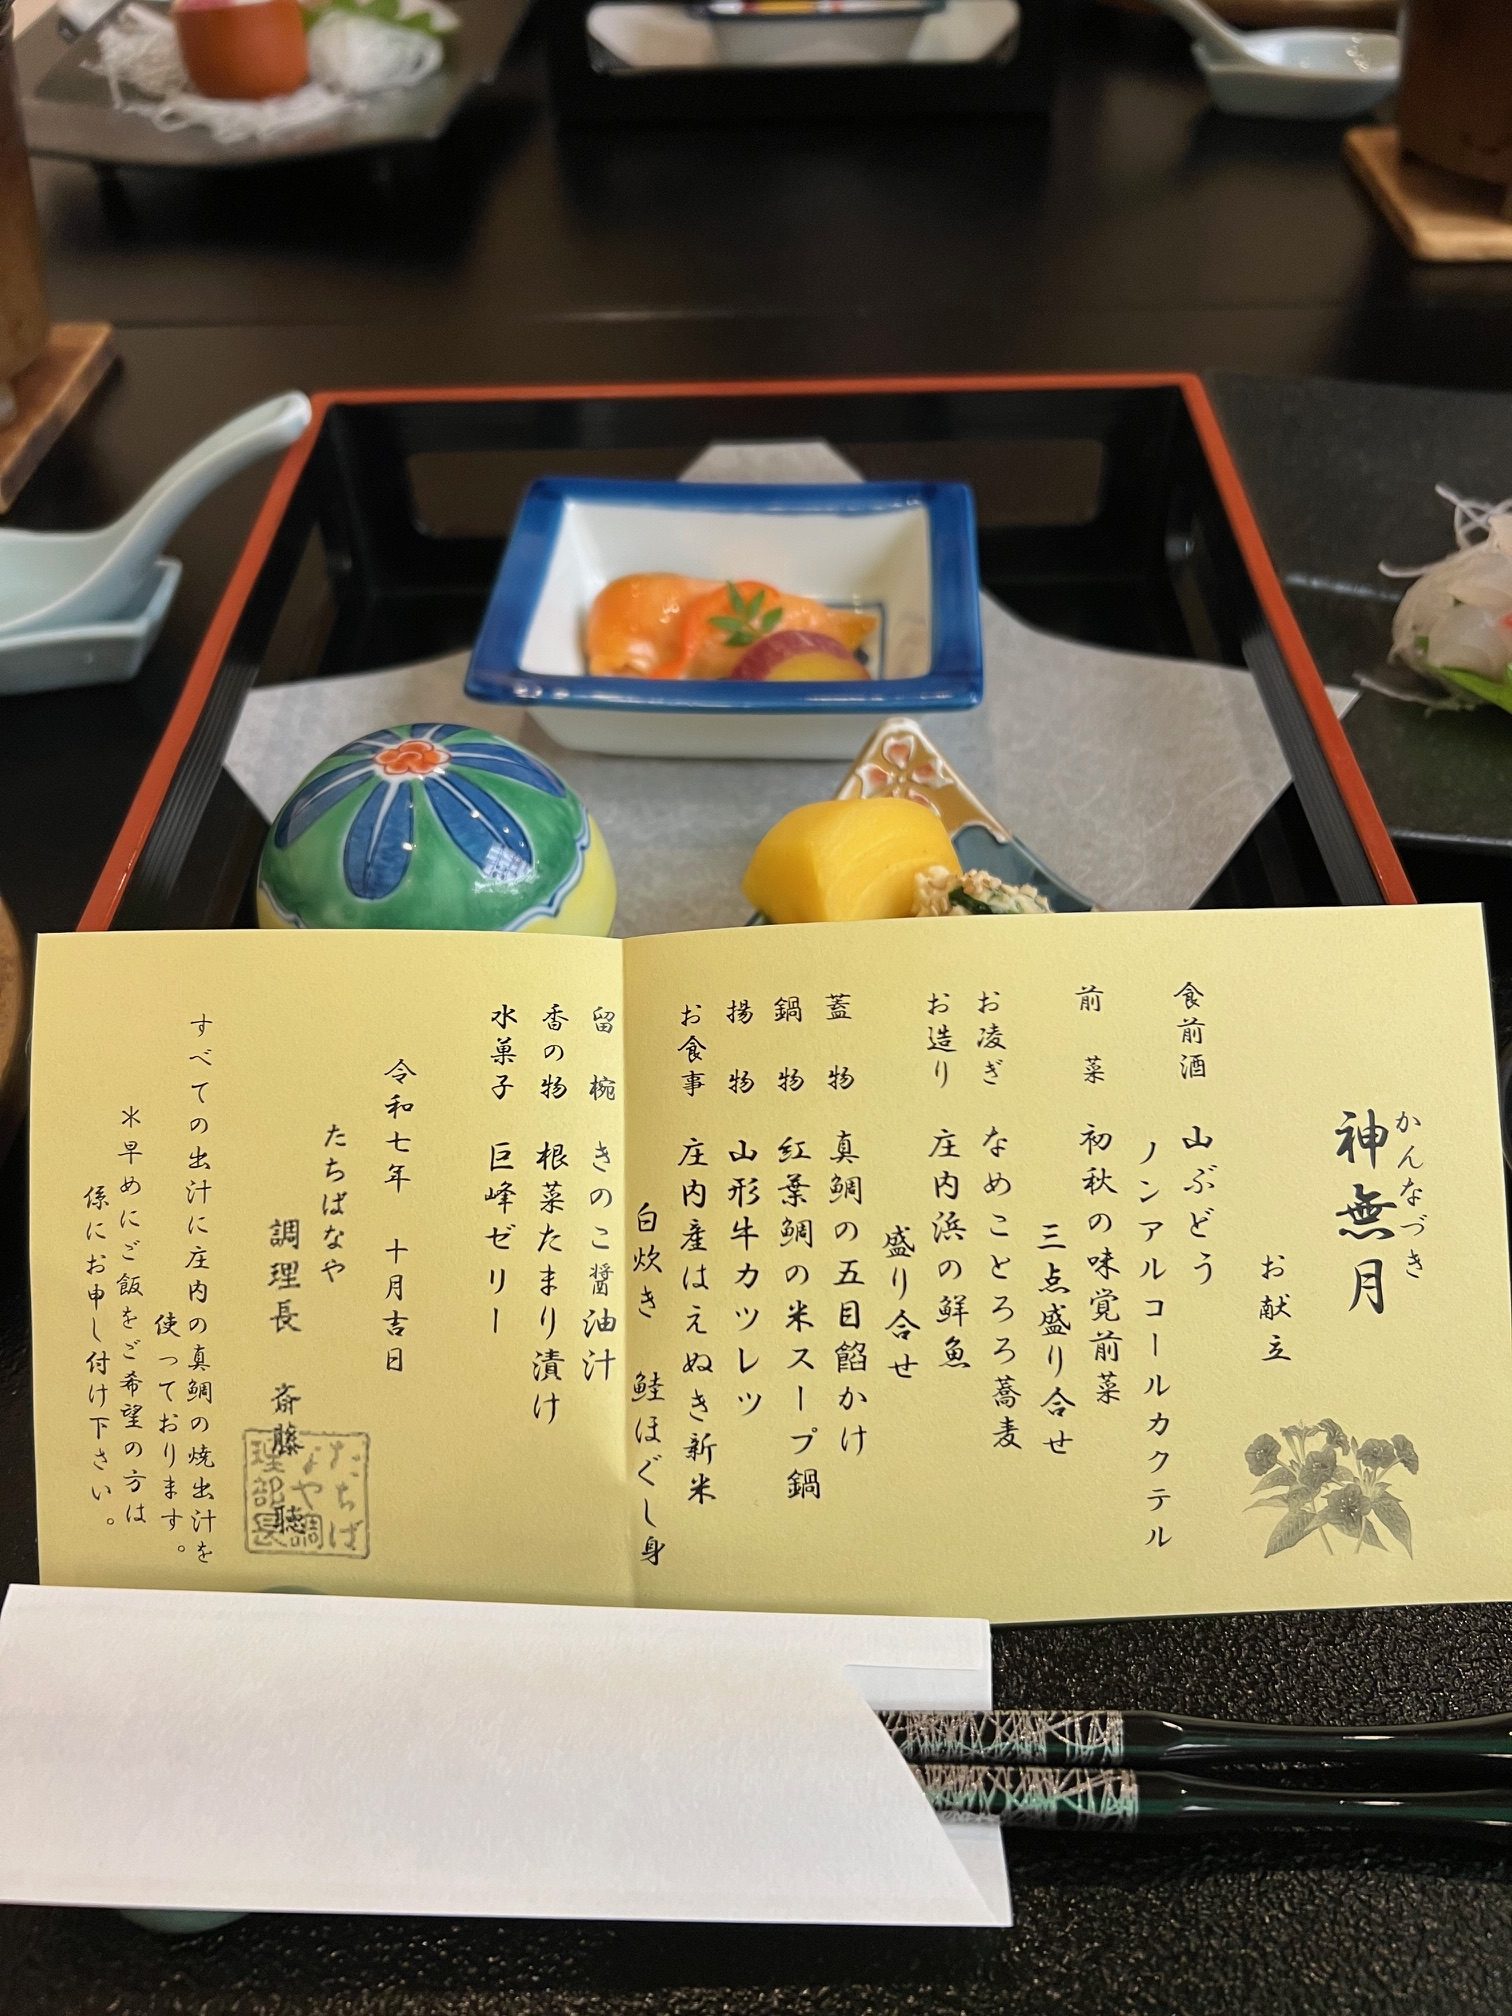 かんなづき
神無月
お献立
食前酒 山ぶどう
ノンアルコールカクテル
前菜 初秋の味覚前菜
三点盛り合せ
お凌ぎ なめことろろ蕎麦
お造り 庄内浜の鮮魚
盛り合せ
蓋物 真鯛の五目餡かけ
鍋物 紅葉鯛の米スープ鍋
揚物 山形牛カツレツ
お食事 庄内産はえぬき新米
白炊き 鮭ほぐし身
留椀 きのこ醤油汁
香の物 根菜たまり漬け
水菓子 巨峰ゼリー
令和七年 十月吉日
たちばなや
調理長 斎藤 聴
たちば
なや調
理部長
すべての出汁に庄内の真鯛の焼出汁を
使っております。
＊早めにご飯をご希望の方は
係にお申し付け下さい。